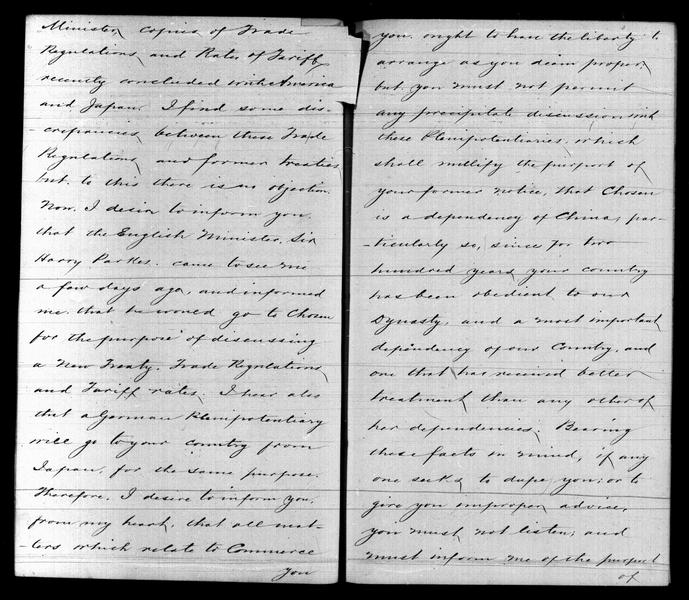 Minister, copies of Trade
Regulations, and Rates of Tariff,
recently concluded with America
and Japan. I find some dis-
-crepancies, between these Trade
Regulations, and former treaties,
but, to this there is no objection.
Now, I desire to inform you
that the English Minister, Sir
Harry Parkes, came to see me
a few days ago, and informed
me, that he would go to Chosen
for the purpose of discussing
a New Treaty, Trade Regulations,
and Tariff rates. I hear also
that a German Plenipotentiary
will go to your country from
Japan, for the same purpose.
Therefore, I desire to inform you,
from my heart, that all mat-
-ters which relate to Commerce
you
you ought to have the liberty to
arrange as you deem proper,
but you must not permit
any precipitate discussion with
these Plenipotentiaries, which
shall nullify the purport of
your former notice, that Chosen
is a dependency of China, par-
-ticularly so, since for two
hundred years, your country
has been obedient to our
Dynasty, and a most important
dependency of our Country, and
one that has received better
treatment than any other of
her dependencies. Bearing
these facts in mind, if any
one seeks to dupe you, or to
give you improper advice,
you must not listen, and
must inform me of the purport
of